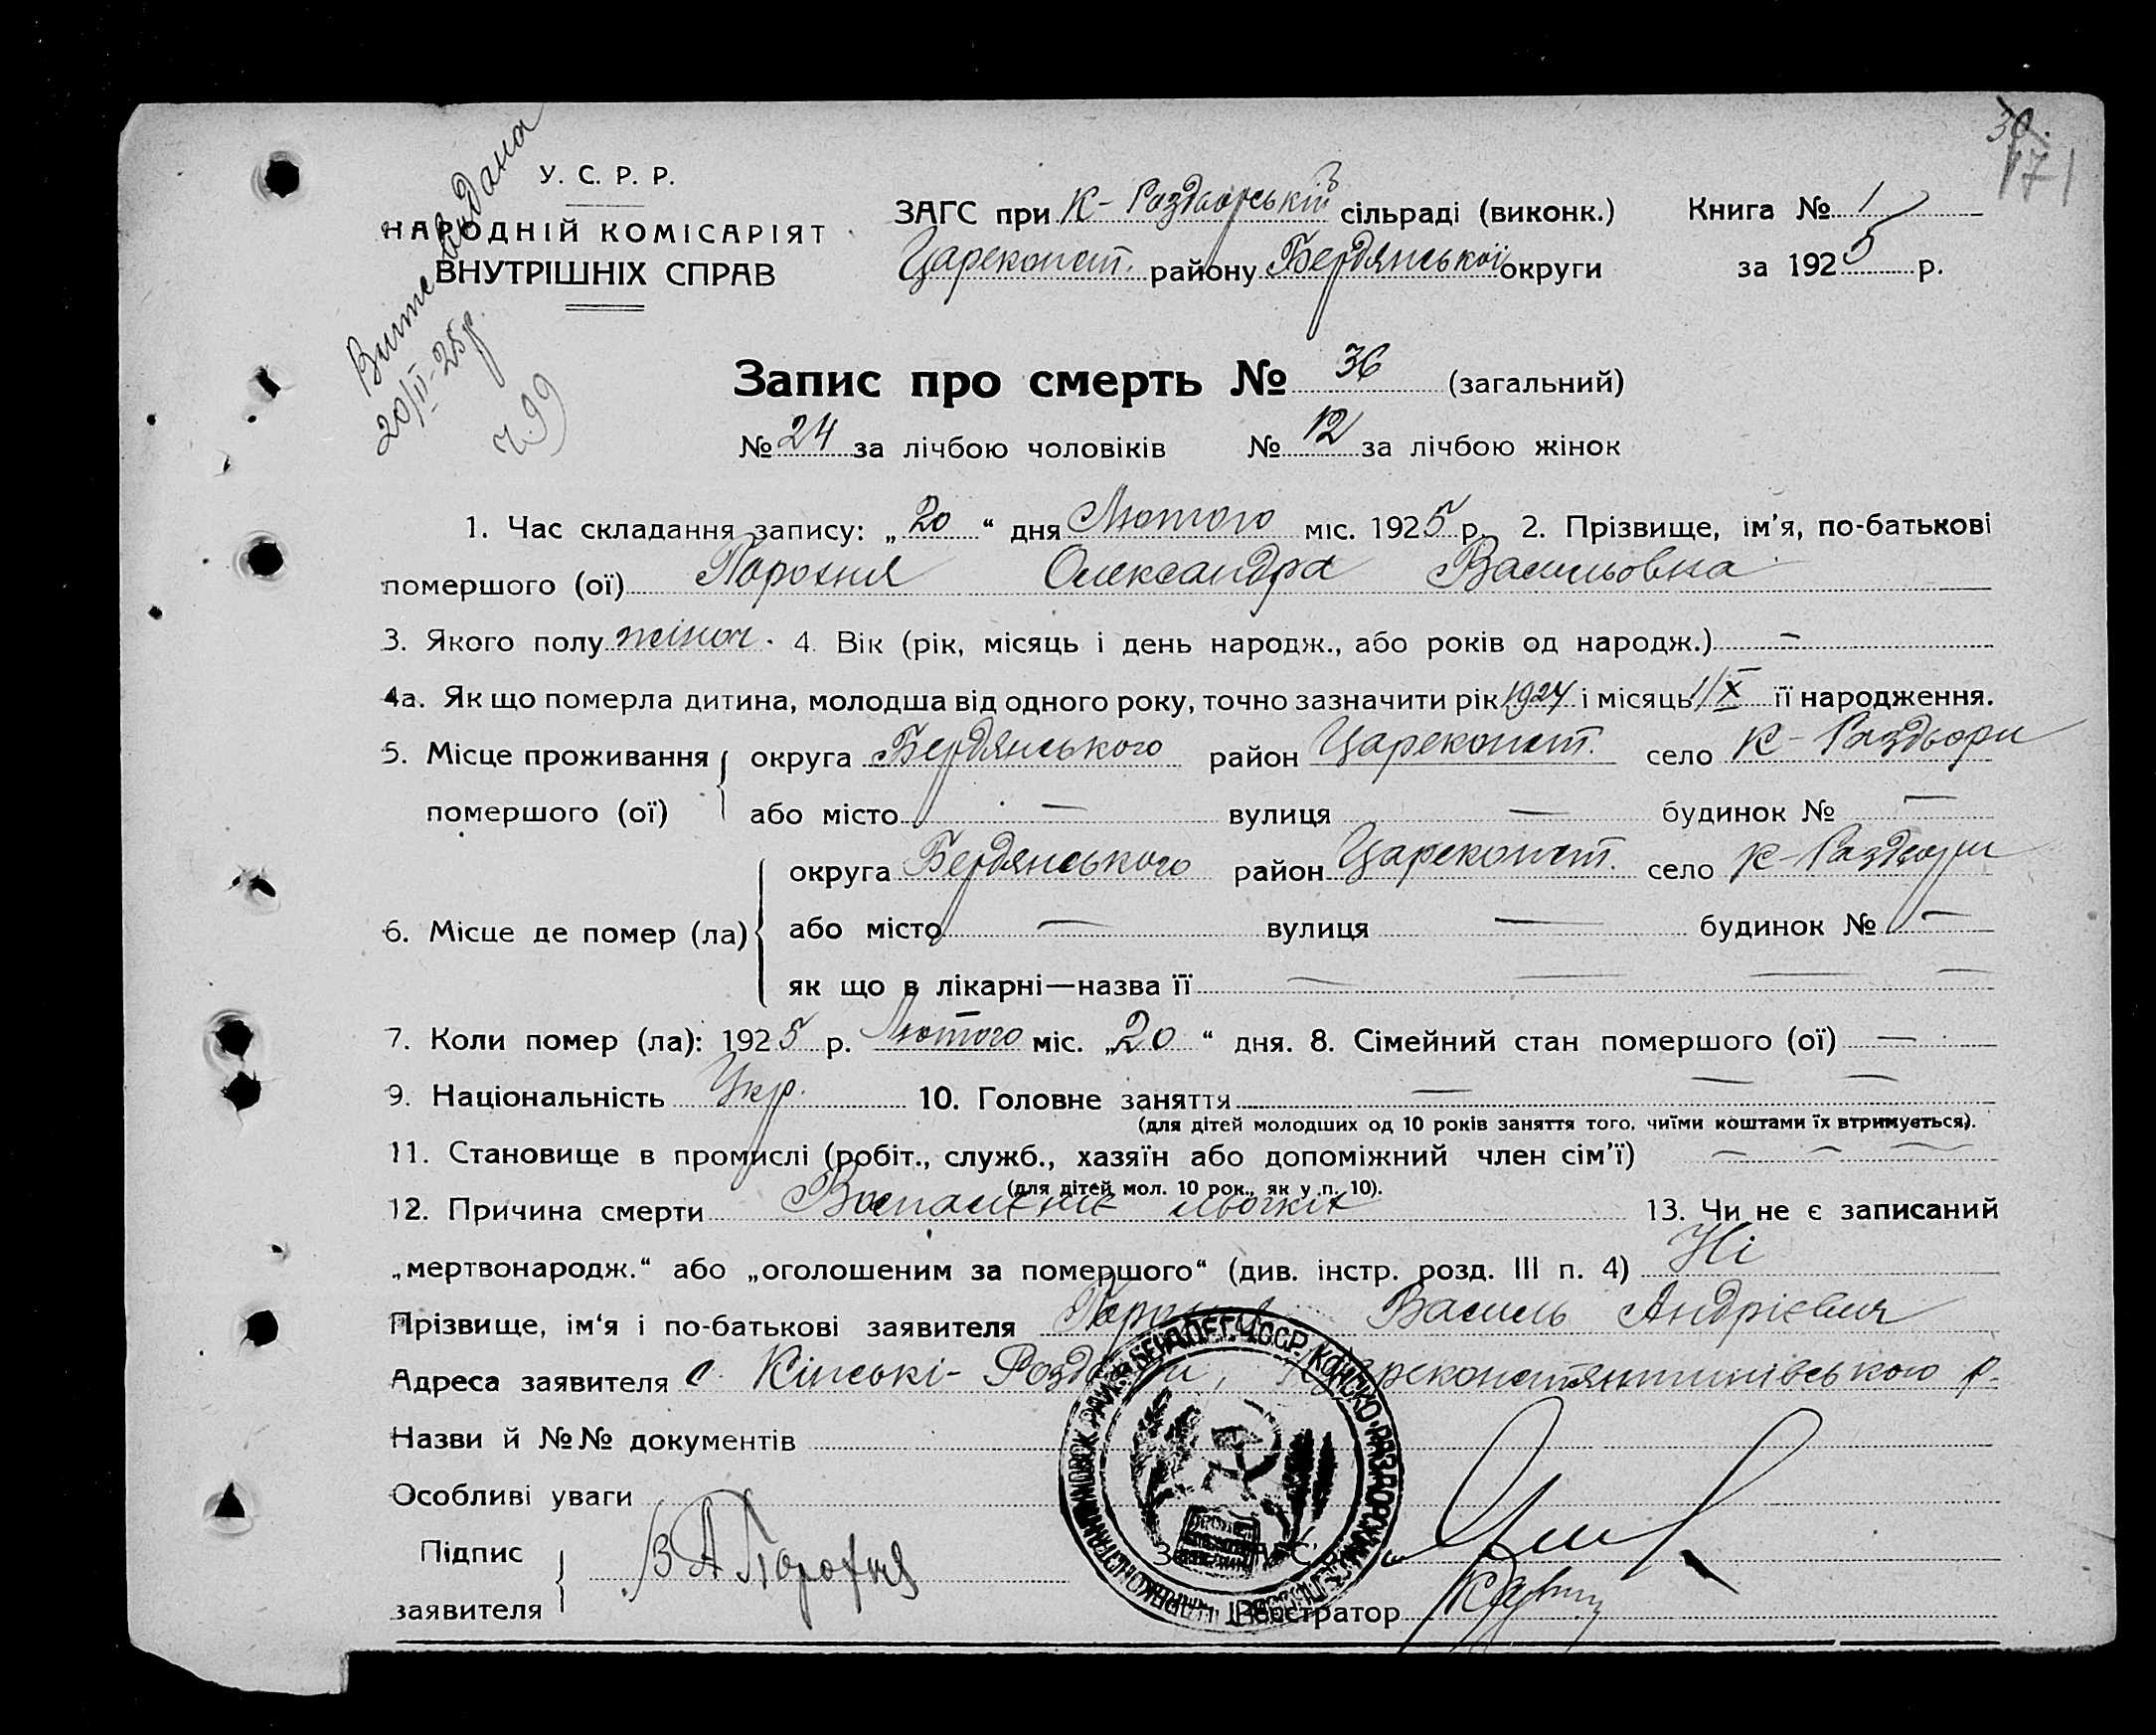 30.
171
Витяг видана
20/II-25р.
ч.99
У. С. Р. Р.
НАРОДНІЙ КОМІСАРІЯТ
ВНУТРІШНІХ СПРАВ
ЗАГС при К-Роздорській сільраді (виконк.) Книга № 1
Цареконст. району Бердянської округи за 1925 р.
Запис про смерть № 36 (загальний)
№ 24 за лічбою чоловіків № 12 за лічбою жінок
1. Час складання запису: „20“ дня Лютого міс. 1925 р. 2. Прізвище, ім'я, по-батькові
помершого (ої) Порохня Олександра Васильовна
3. Якого полу жіноч. 4. Вік (рік, місяць і день народж., або років од народж.) —
4а. Як що померла дитина, молодша від одного року, точно зазначити рік 1924 і місяць 1/X її народження.
5. Місце проживання округа Бердянського район Цареконст. село К-Роздори
помершого (ої) або місто — вулиця — будинок № —
округа Бердянського район Цареконст. село К-Роздори
6. Місце де помер (ла) або місто — вулиця — будинок № —
як що в лікарні—назва її — — — —
7. Коли помер (ла): 1925 р. Лютого міс. „20“ дня. 8. Сімейний стан помершого (ої) —
9. Національність Укр. 10. Головне заняття — — —
(для дітей молодших од 10 років заняття того, чиїми коштами їх втримується).
11. Становище в промислі (робіт., служб., хазяїн або допоміжний член сім'ї) — — —
(для дітей мол. 10 рок., як у п. 10).
12. Причина смерти Воспаленіе льогкіх 13. Чи не є записаний
„мертвонародж.“ або „оголошеним за помершого“ (див. інстр. розд. III п. 4) Ні
Прізвище, ім'я і по-батькові заявителя Порохня Василь Андрієвич
Адреса заявителя с. Кінські-Роздори, Цареконстянтинівського р.
Назви й №№ документів
Особливі уваги
Підпис
заявителя В А Порохня
Реєстратор